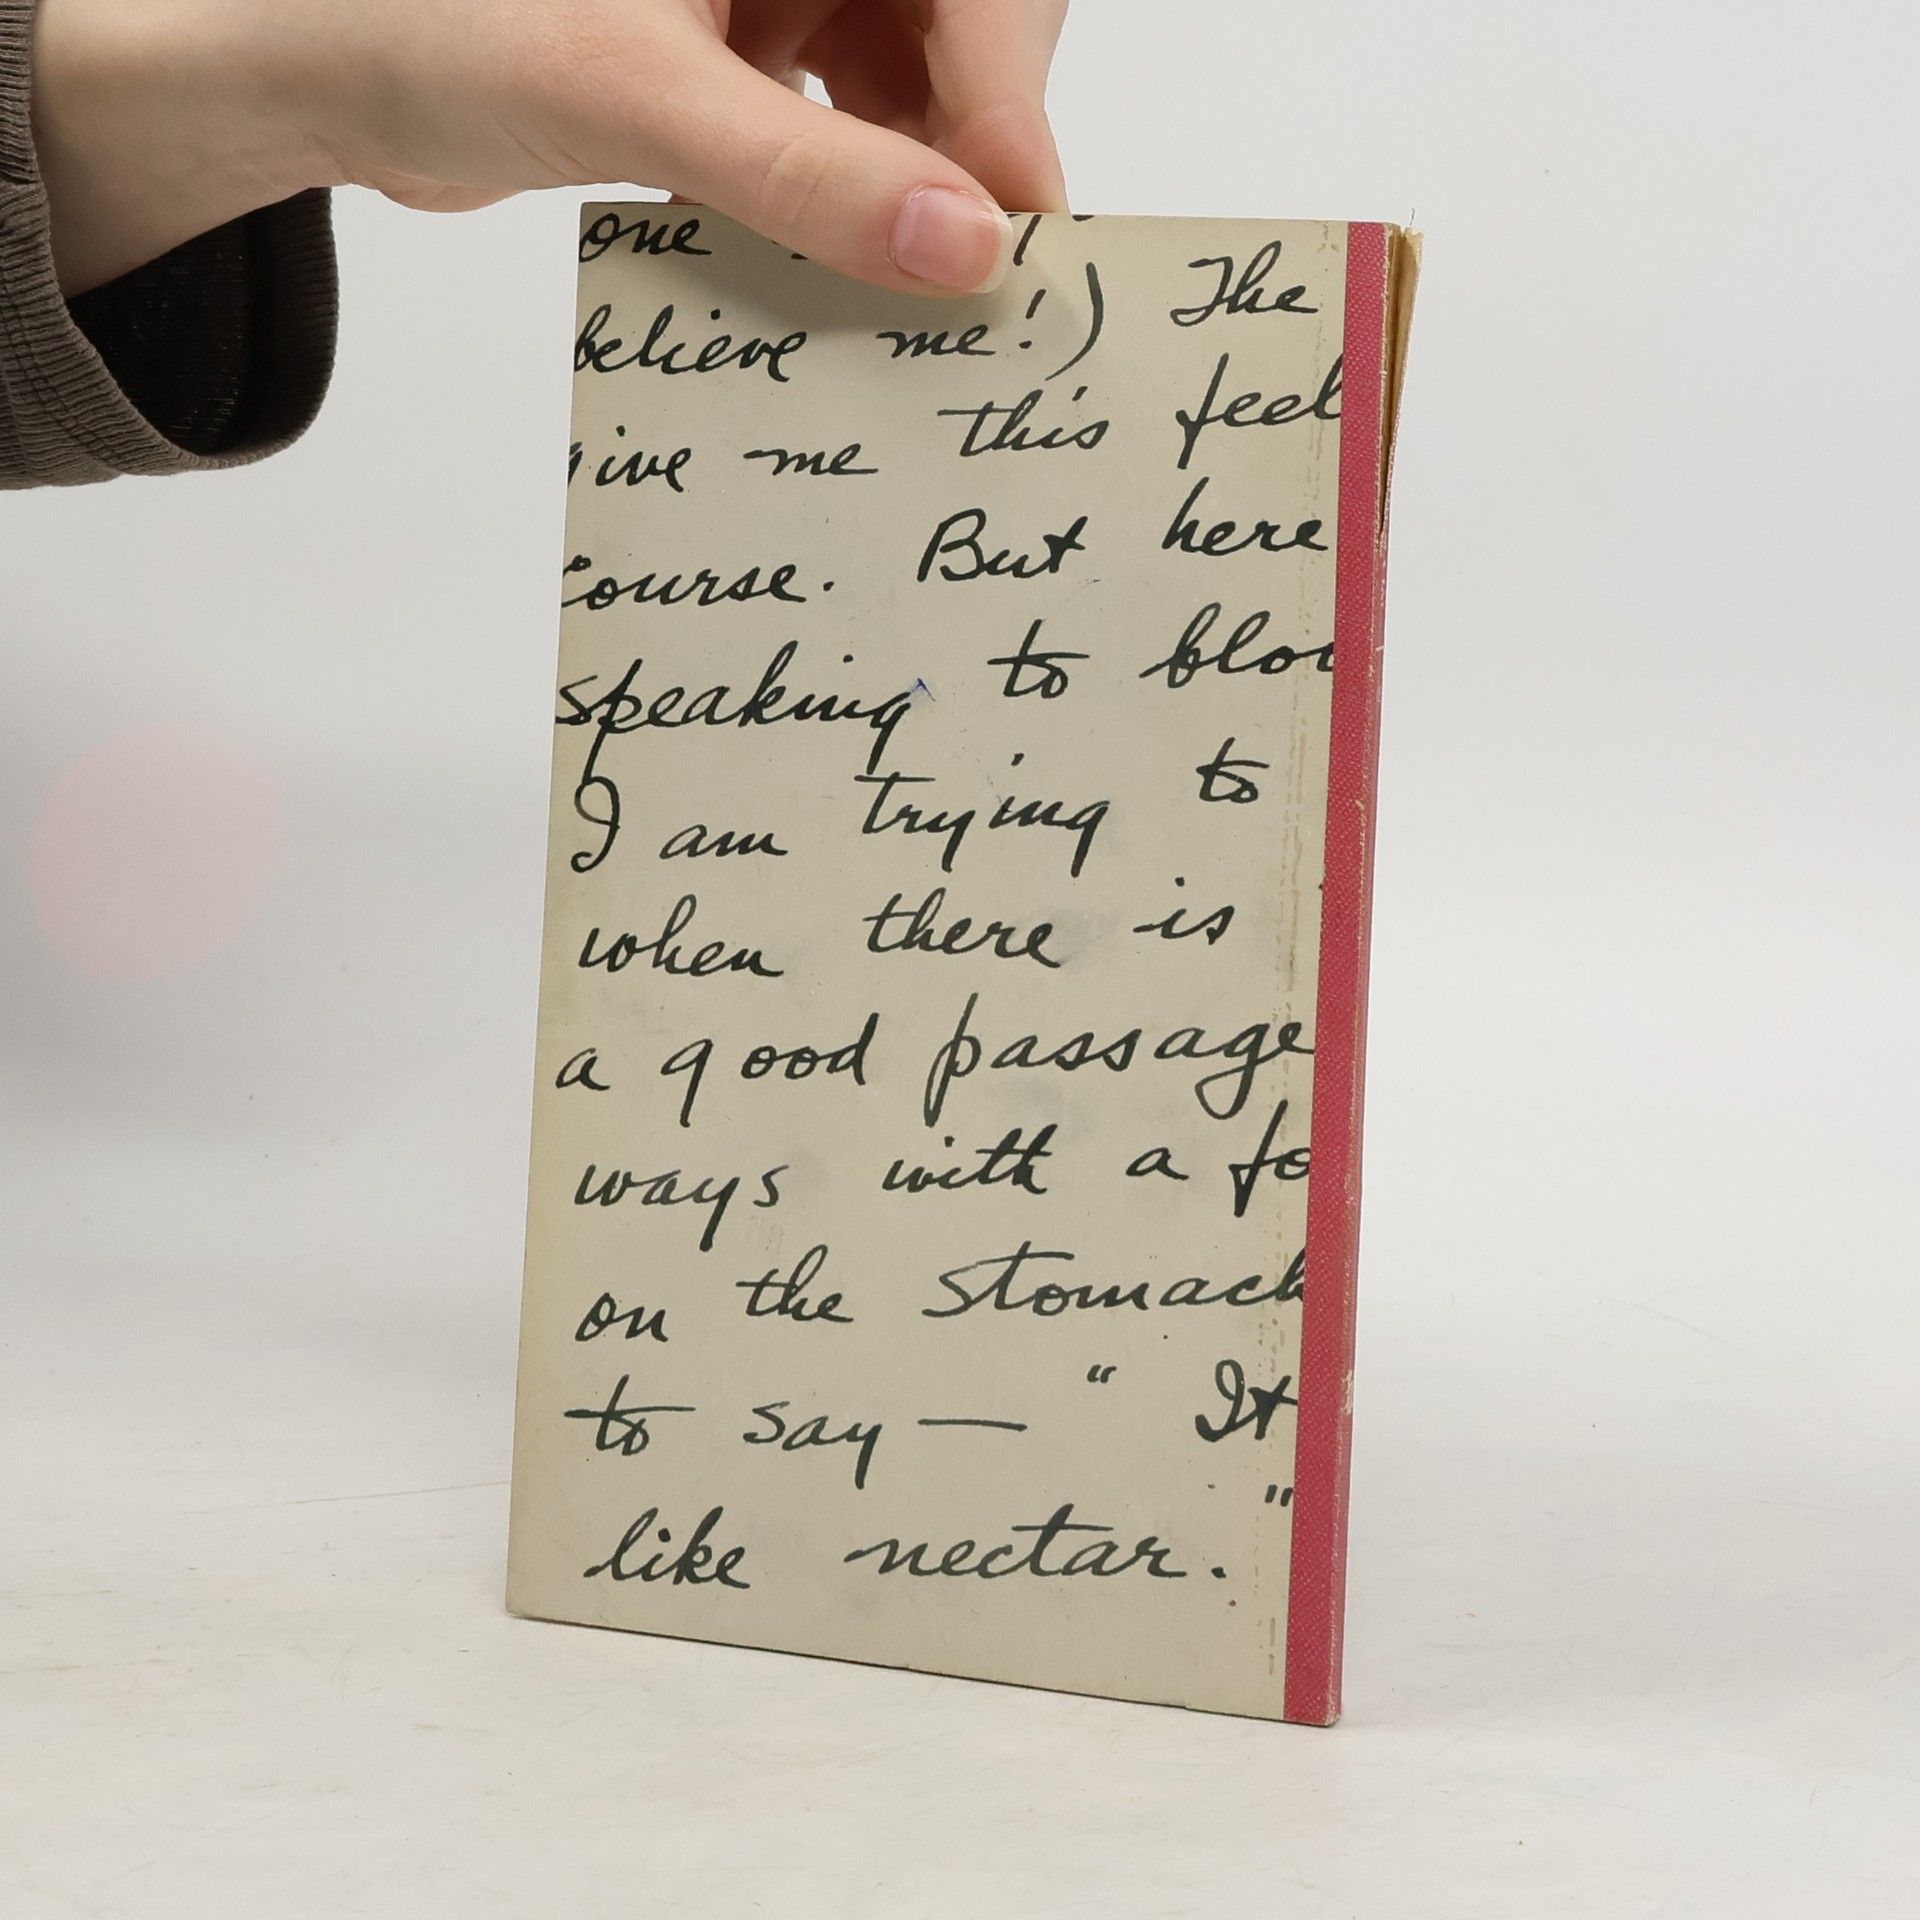 one
believe me!) The
give me this feel
course. But here
speaking to blo
I am trying to
when there is
a good passage
ways with a fo
on the stomach
to say — " It
like nectar. "